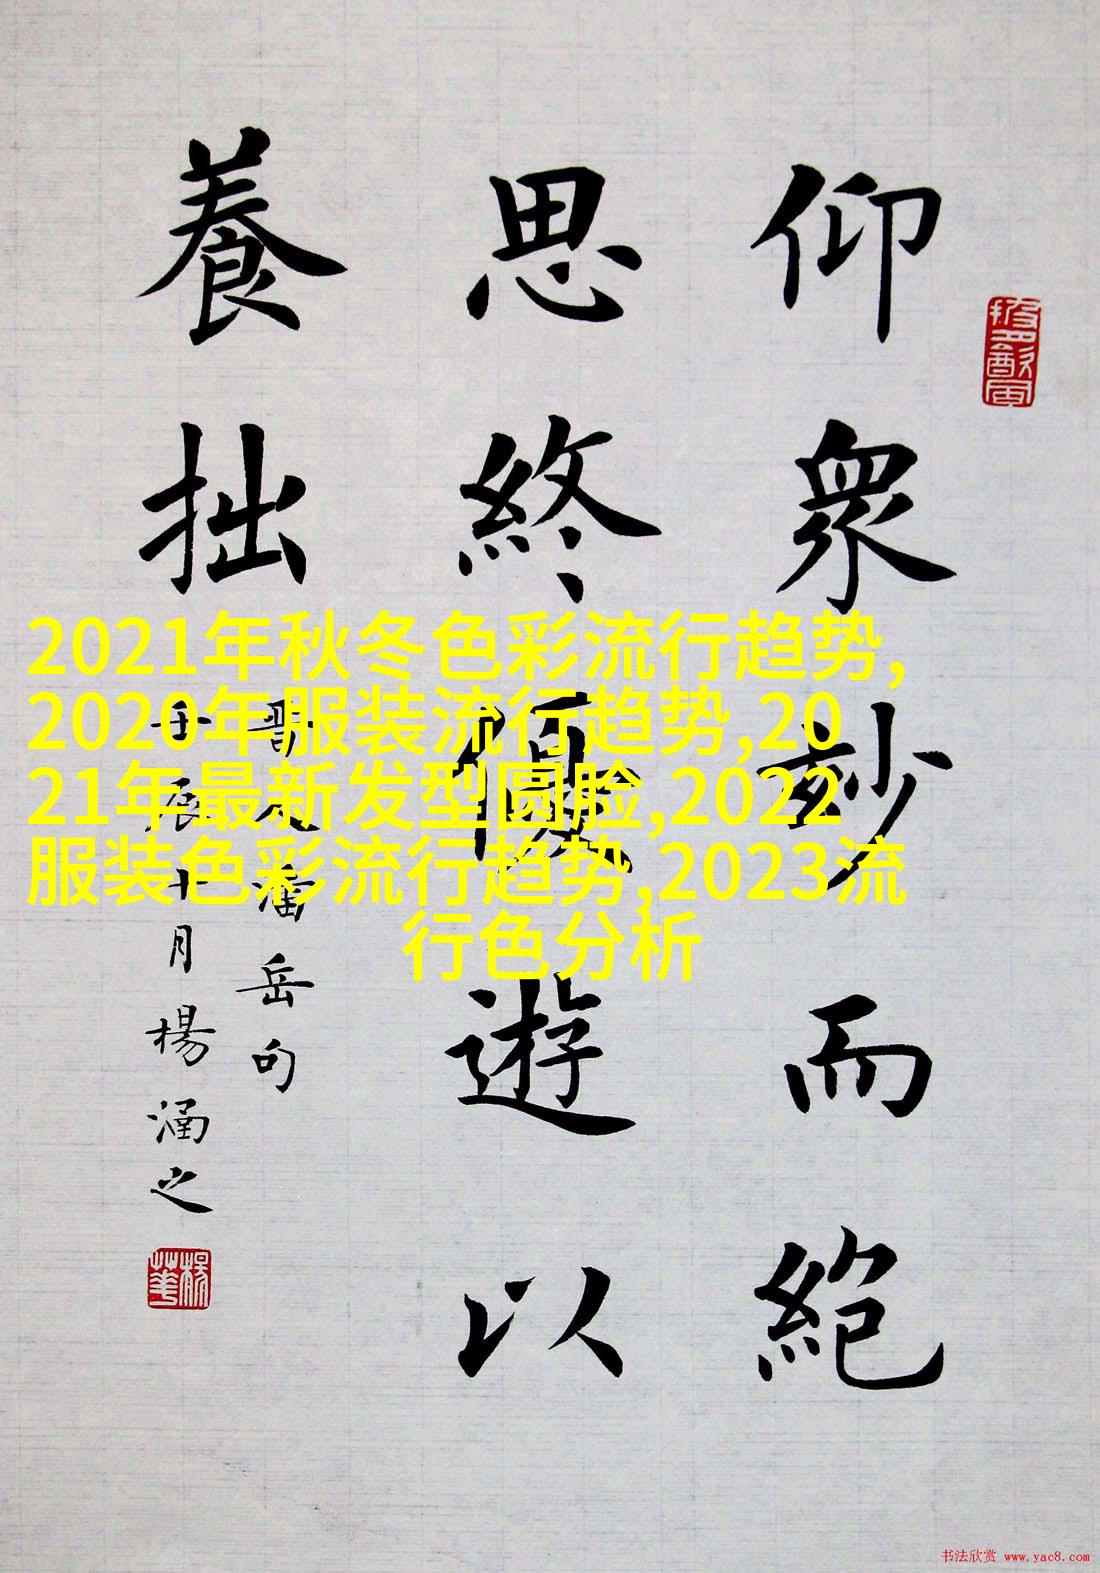 仰眾妙而絕
思終優遊以
養拙
晉人潘岳句
壬辰十月楊涵之
2021年秋冬色彩流行趋势,
2020年服装流行趋势,20
21年最新发型圆脸,2022
服装色彩流行趋势,2023流
行色分析
书法欣赏 www.yac8.com